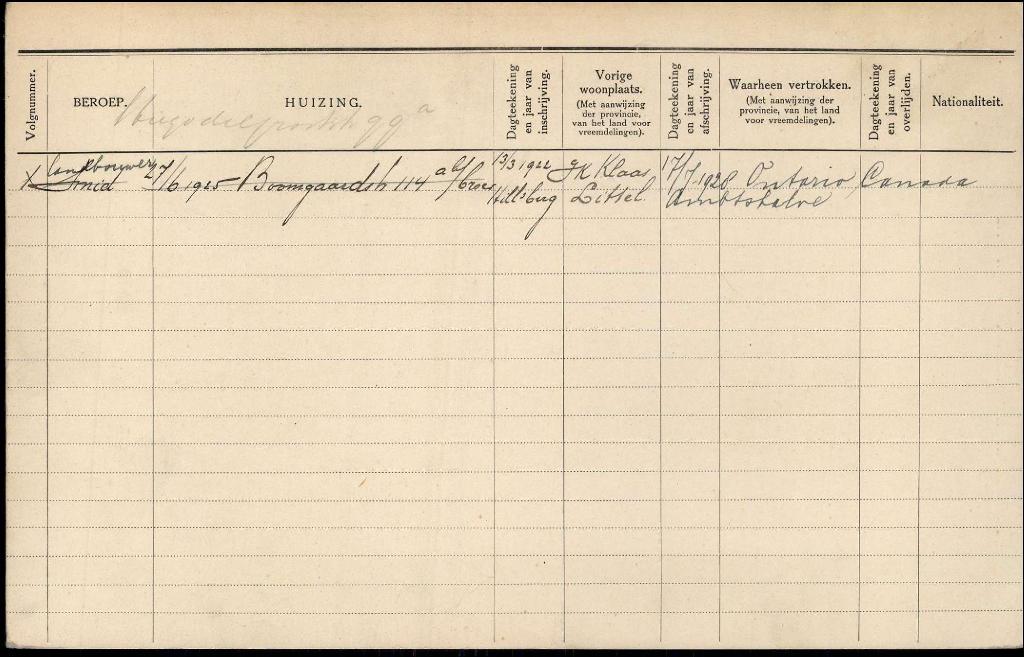 Volgnummer.
BEROEP.
HUIZING.
Dagteekening en jaar van inschrijving.
Vorige woonplaats.
(Met aanwijzing der provincie, van het land voor vreemdelingen).
Dagteekening en jaar van afschrijving.
Waarheen vertrokken.
(Met aanwijzing der provincie, van het land voor vreemdelingen).
Dagteekening en jaar van overlijden.
Nationaliteit.
99 a
landbouwer
smid
27/6 1925 Boomgaardstr 114 a
13/3 1922
Klaas
17/7 1928 Ontario, Canada
Ambtshalve